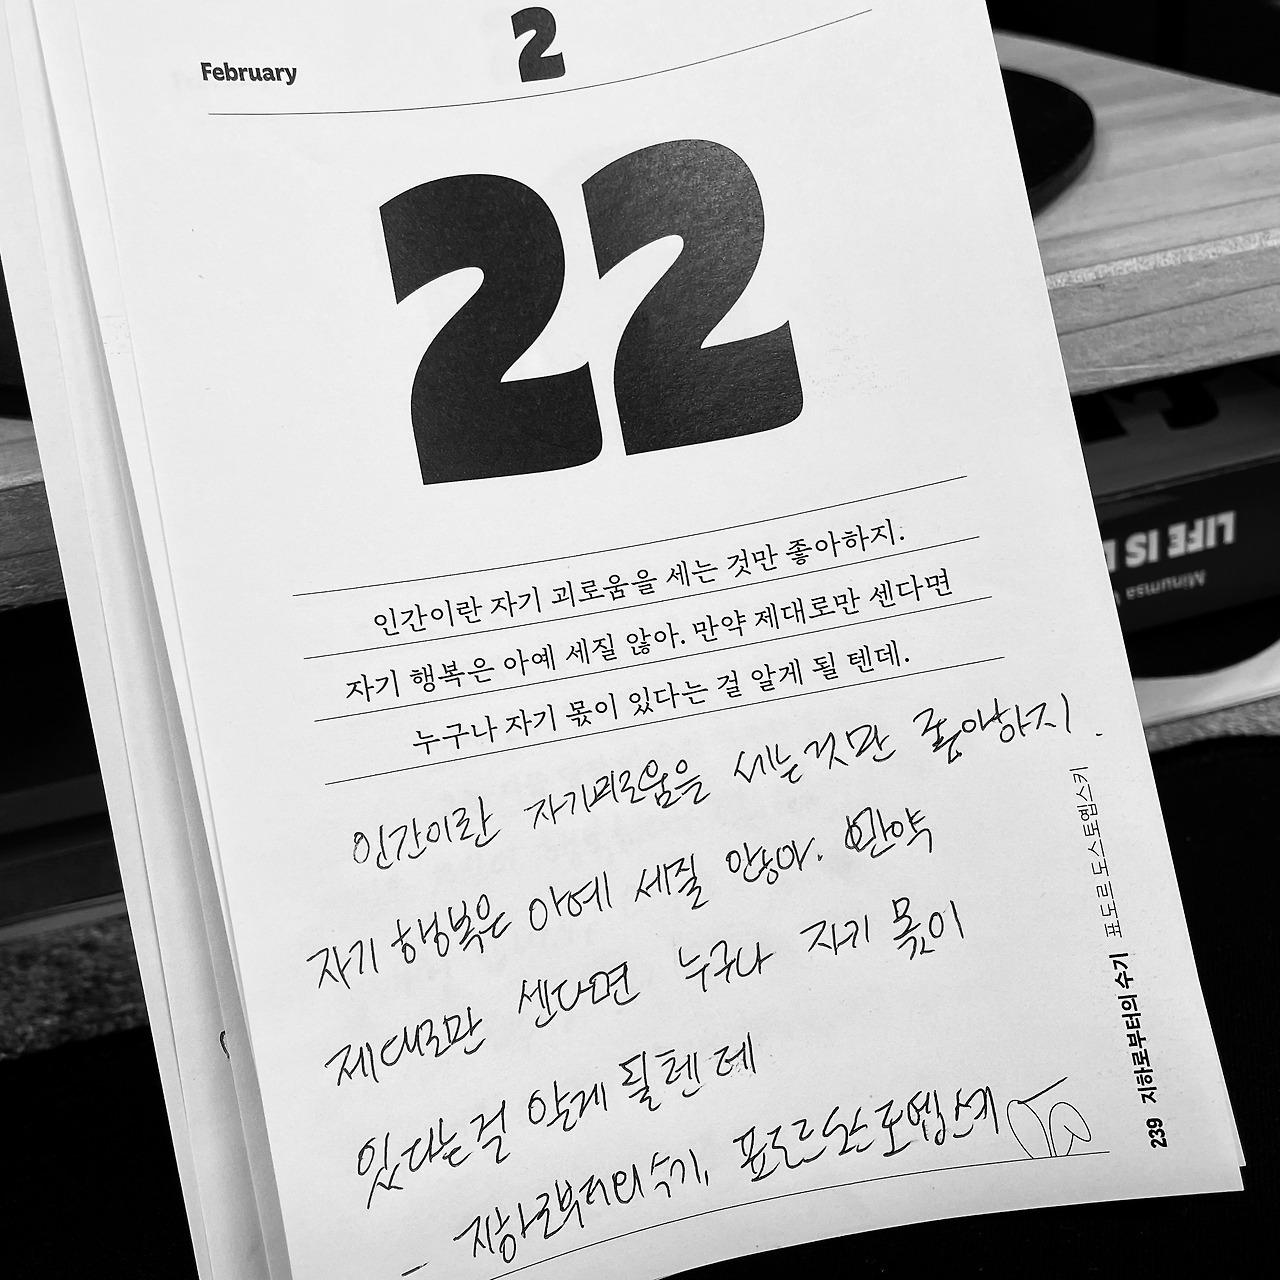 February
2
22
인간이란 자기 괴로움을 세는 것만 좋아하지.
자기 행복은 아예 세질 않아. 만약 제대로만 센다면
누구나 자기 몫이 있다는 걸 알게 될 텐데.
인간이란 자기괴로움을 세는것만 좋아하지.
자기 행복은 아예 세질 않아. 만약
제대로만 센다면 누구나 자기 몫이
있다는걸 알게 될텐데
- 지하로부터의 수기,
239 지하로부터의 수기 표도르 도스토옙스키
LIFE IS
Minumsa